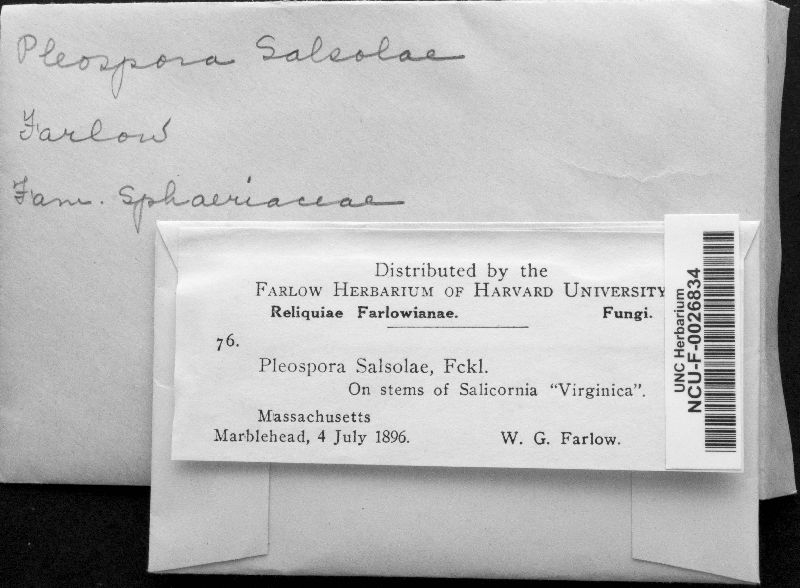 Pleospora Salsolae
Farlow
Fam. Sphaeriaceae
Distributed by the
FARLOW HERBARIUM OF HARVARD UNIVERSITY
Reliquiae Farlowianae. Fungi.
76.
Pleospora Salsolae, Fckl.
On stems of Salicornia “Virginica”.
Massachusetts
Marblehead, 4 July 1896. W. G. Farlow.
UNC Herbarium
NCU-F-0026834